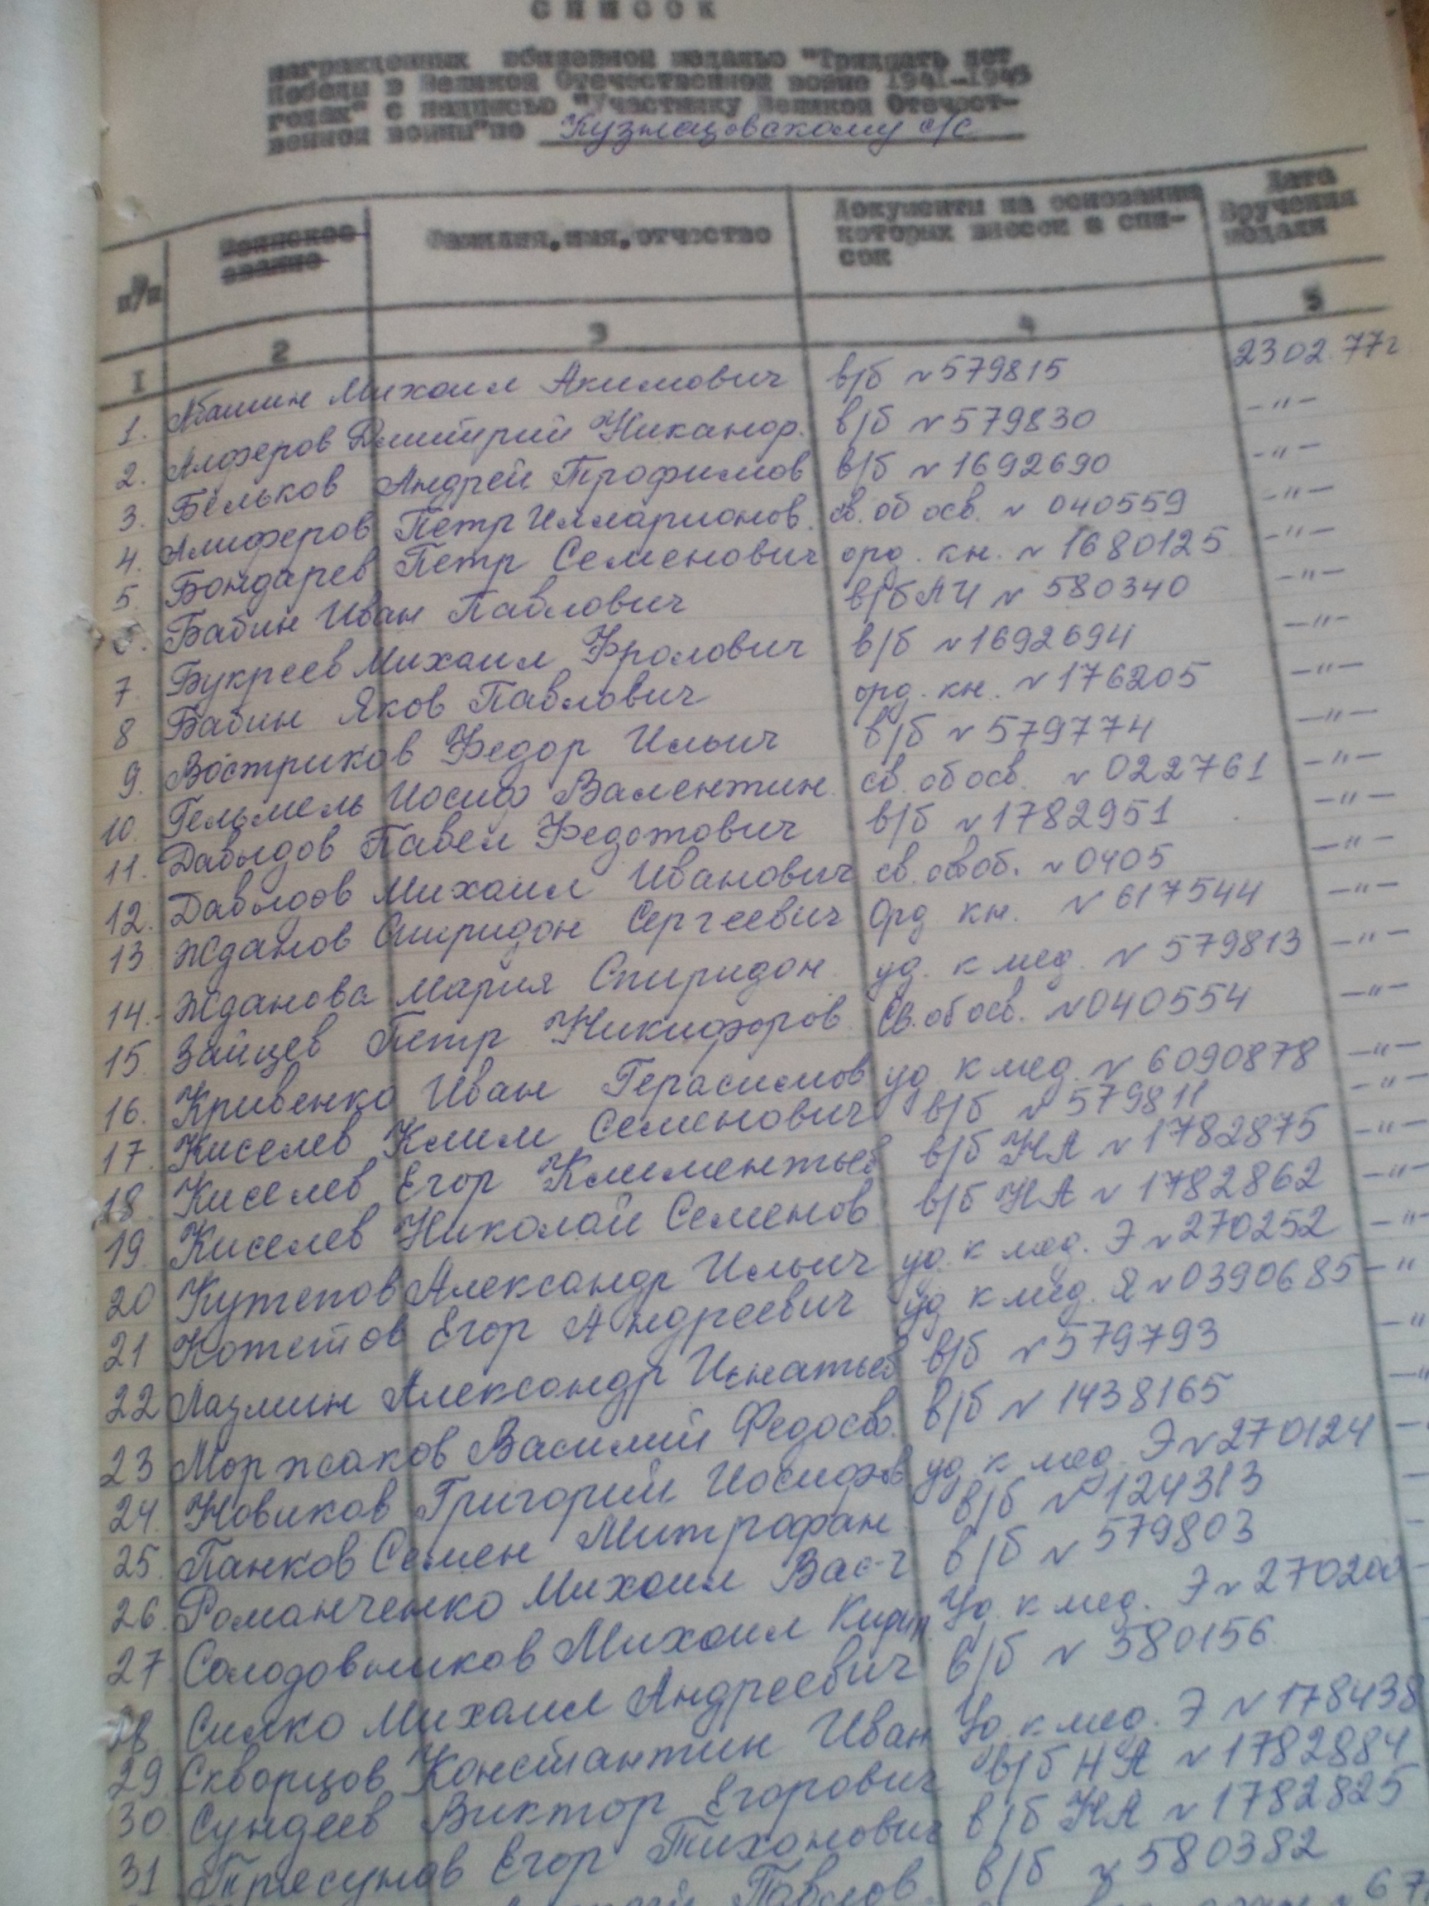 СПИСОК
награжденных юбилейной медалью "Тридцать лет
Победы в Великой Отечественной войне 1941-1945
годах" с надписью "Участнику Великой Отечест-
венной войны" по Кузнецовскому с/с
№ п/п Воинское звание Фамилия, имя, отчество Документы на основании которых внесен в спи- сок Дата вручения медали
1 2 3 4 5
1. Абашин Михаил Акимович в/б №579815 23 02 77г
2. Алферов Дмитрий Никанор. в/б №579830 -"-
3. Бельков Андрей Трофимов в/б №1692690 -"-
4. Алиферов Петр Илларионов. св. об осв. № 040559 -"-
5. Бондарев Петр Семенович орд. кн. №1680125 -"-
6. Бабин Иван Павлович в/б № 580340 -"-
7. Букреев Михаил Фролович в/б №1692694 -"-
8 Бабин Яков Павлович орд. кн. №176205 -"-
9. Востриков Федор Ильич в/б №579774 -"-
10. Гельмель Иосиф Валентин. св. об осв. №022761 -"-
11. Давыдов Павел Федотович в/б №1782951 -"-
12. Давыдов Михаил Иванович св. освоб. №0405 -"-
13 Жданов Спиридон Сергеевич Орд кн. №617544 -"-
14. Жданова Мария Спиридон. уд. к мед. №579813 -"-
15 Зайцев Петр Никифоров. Св. об осв. №040554 -"-
16. Кривенко Иван Герасимов уд к мед. №6090878 -"-
17. Киселев Клим Семенович в/б №579811 -"-
18. Киселев Егор Климентьев в/б НА №1782875 -"-
19. Киселев Николай Семенов. в/б НА №1782862 -"-
20 Кутепов Александр Ильич уд. к мед. Э №270252 -"-
21 Котетов Егор Андреевич уд к мед. Я №0390685 -"-
22 Александр Игнатьев в/б №579793 -"
23 Моржаков Василий Федосев. в/б №1438165 -"
24. Новиков Григорий Иосифов уд к мед. Э №270124 -
25. Панков Семен Митрофан. в/б №124313 -
26. Романченко Михаил Вас-ч в/б №579803 -
27. Солодовников Михаил Уд. к мед. Э №
28. Силко Михаил Андреевич в/б №580156
29 Скворцов Константин Иван Уд. к мед. Э №178438
30. Сундеев Виктор Егорович в/б НА №1782884
31 Егор Тихонович в/б НА №1782825
Павлов. в/б №580382